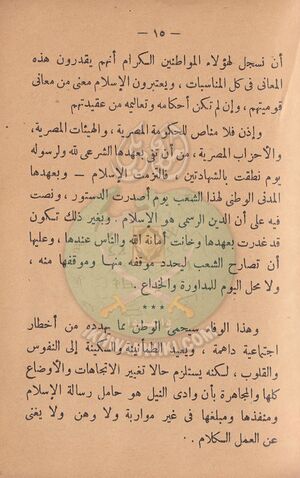 — ١٥ —
أن نسجل لهؤلاء المواطنين الكرام أنهم يقدرون هذه
المعانى فى كل المناسبات ، ويعتبرون الإسلام معنى من معانى
قوميتهم ، وإن لم تكن أحكامه وتعاليمه من عقيدتهم
وإذن فلا مناص للحكومة المصرية ، والهيئات المصرية ،
والأحزاب المصرية ، من أن تفى بعهدها الشرعى لله ولرسوله
يوم نطقت بالشهادتين ، فالتزمت الإسلام — وبعهدها
المدنى الوطنى لهذا الشعب يوم أصدرت الدستور ، ونصت
فيه على أن الدين الرسمى هو الإسلام . وبغير ذلك تكون
قد غدرت بعهدها وخانت أمانة الله والناس عندها ، وعليها
أن تصارح الشعب ليحدد موقفه منها وموقفها منه ،
ولا محل اليوم للمداورة والخداع .
***
وهذا الوفاء سيحمى الوطن مما يهدده من أخطار
اجتماعية داهمة ، ويعيد الطمأنينة والسكينة إلى النفوس
والقلوب ، لكنه يستلزم حالا تغيير الاتجاهات والأوضاع
كلها والمجاهرة بأن وادى النيل هو حامل رسالة الإسلام
ومنفذها ومبلغها فى غير مواربة ولا وهن ولا يغنى
عن العمل الكلام .